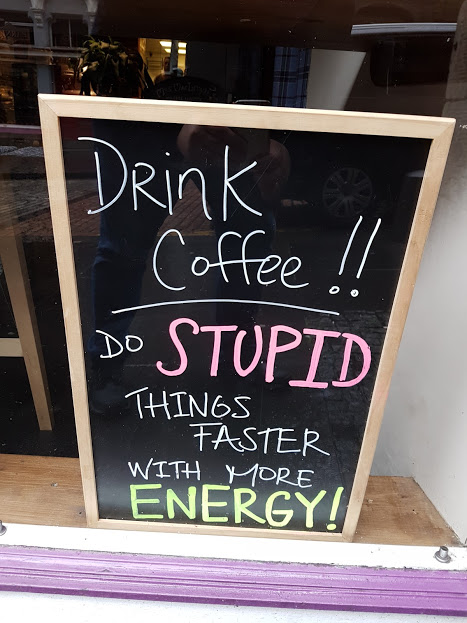 Drink
Coffee!!
DO STUPID
THINGS
FASTER
WITH MORE
ENERGY!